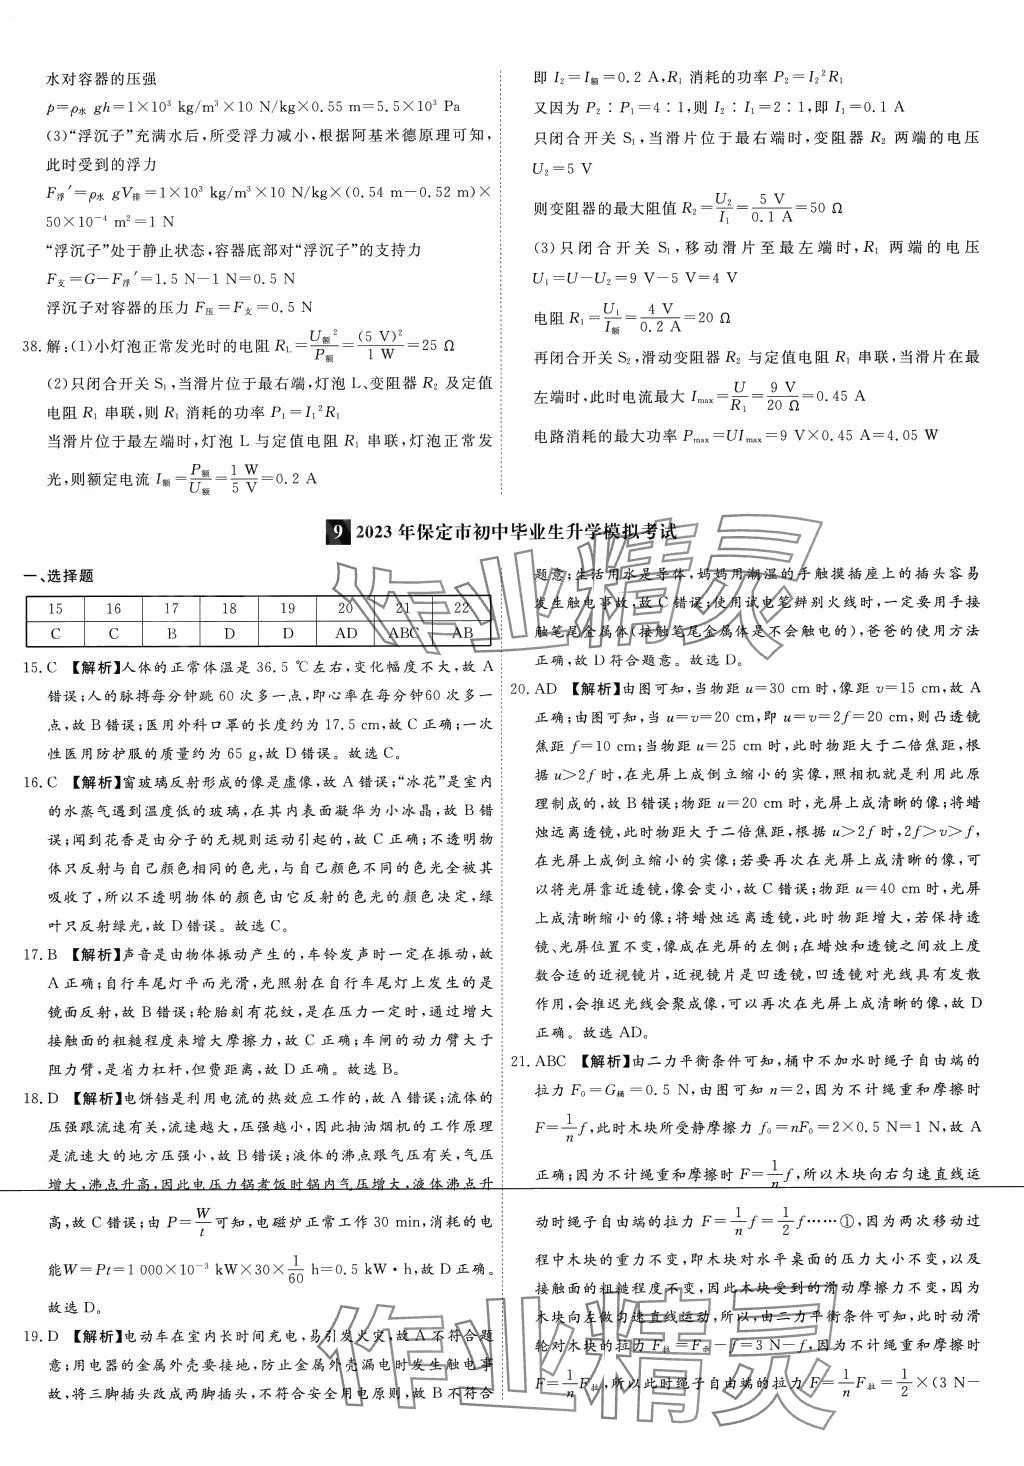 水对容器的压强
p=ρ水 gh=1×10³ kg/m³×10 N/kg×0.55 m=5.5×10³ Pa
(3)“浮沉子”充满水后,所受浮力减小,根据阿基米德原理可知,
此时受到的浮力
F浮′=ρ水 gV排=1×10³ kg/m³×10 N/kg×(0.54 m-0.52 m)×
50×10⁻⁴ m²=1 N
“浮沉子”处于静止状态,容器底部对“浮沉子”的支持力
F支=G-F浮′=1.5 N-1 N=0.5 N
浮沉子对容器的压力 F压=F支=0.5 N
38.解:(1)小灯泡正常发光时的电阻 RL=U额²/P额=(5 V)²/1 W=25 Ω
(2)只闭合开关 S₁,当滑片位于最右端,灯泡 L、变阻器 R₂ 及定值
电阻 R₁ 串联,则 R₁ 消耗的功率 P₁=I₁²R₁
当滑片位于最左端时,灯泡 L 与定值电阻 R₁ 串联,灯泡正常发
光,则额定电流 I额=P额/U额=1 W/5 V=0.2 A
即 I₂=I额=0.2 A,R₁ 消耗的功率 P₂=I₂²R₁
又因为 P₂∶P₁=4∶1,则 I₂∶I₁=2∶1,即 I₁=0.1 A
只闭合开关 S₁,当滑片位于最右端时,变阻器 R₂ 两端的电压
U₂=5 V
则变阻器的最大阻值 R₂=U₂/I₁=5 V/0.1 A=50 Ω
(3)只闭合开关 S₁,移动滑片至最左端时,R₁ 两端的电压
U₁=U-U₂=9 V-5 V=4 V
电阻 R₁=U₁/I额=4 V/0.2 A=20 Ω
再闭合开关 S₂,滑动变阻器 R₂ 与定值电阻 R₁ 串联,当滑片在最
左端时,此时电流最大 Imax=U/R₁=9 V/20 Ω=0.45 A
电路消耗的最大功率 Pmax=UImax=9 V×0.45 A=4.05 W
9 2023 年保定市初中毕业生升学模拟考试
一、选择题
15 16 17 18 19 20 21 22
C C B D D AD ABC AB
15.C 【解析】人体的正常体温是 36.5 ℃左右,变化幅度不大,故 A
错误;人的脉搏每分钟跳 60 次多一点,即心率在每分钟60 次多一
点,故 B 错误;医用外科口罩的长度约为 17.5 cm,故 C 正确;一次
性医用防护服的质量约为 65 g,故 D 错误。故选 C。
16.C 【解析】窗玻璃反射形成的像是虚像,故 A 错误;“冰花”是室内
的水蒸气遇到温度低的玻璃,在其内表面凝华为小冰晶,故 B 错
误;闻到花香是由分子的无规则运动引起的,故 C 正确;不透明物
体只反射与自己颜色相同的色光,与自己颜色不同的色光全被其
吸收了,所以不透明物体的颜色由它反射的色光的颜色决定,绿
叶只反射绿光,故 D 错误。故选 C。
17.B 【解析】声音是由物体振动产生的,车铃发声时一定在振动,故
A 正确;自行车尾灯平而光滑,光照射在自行车尾灯上发生的是
镜面反射,故 B 错误;轮胎刻有花纹,是在压力一定时,通过增大
接触面的粗糙程度来增大摩擦力,故 C 正确;车闸的动力臂大于
阻力臂,是省力杠杆,但费距离,故 D 正确。故选 B。
18.D 【解析】电饼铛是利用电流的热效应工作的,故 A 错误;流体的
压强跟流速有关,流速越大,压强越小,因此抽油烟机的工作原理
是流速大的地方压强小,故 B 错误;液体的沸点跟气压有关,气压
增大,沸点升高,因此电压力锅煮饭时锅内气压增大,液体沸点升
高,故 C 错误;由 P=W/t可知,电磁炉正常工作 30 min,消耗的电
能W=Pt=1 000×10⁻³ kW×30×1/60 h=0.5 kW·h,故 D 正确。
故选 D。
19.D 【解析】电动车在室内长时间充电,易引发火灾,故 A 不符合题
意;用电器的金属外壳要接地,防止金属外壳漏电时发生触电事
故,将三脚插头改成两脚插头,不符合安全用电原则,故 B 不符合
题意;生活用水是导体,妈妈用潮湿的手触摸插座上的插头容易
发生触电事故,故 C 错误;使用试电笔辨别火线时,一定要用手接
触笔尾金属体(接触笔尾金属体是不会触电的),爸爸的使用方法
正确,故 D 符合题意。故选 D。
20.AD 【解析】由图可知,当物距 u=30 cm 时,像距 v=15 cm,故 A
正确;由图可知,当 u=v=20 cm,即 u=v=2f=20 cm,则凸透镜
焦距 f=10 cm;当物距 u=25 cm 时,此时物距大于二倍焦距,根
据 u>2f 时,在光屏上成倒立缩小的实像,照相机就是利用此原
理制成的,故 B 错误;物距 u=20 cm 时,光屏上成清晰的像;将蜡
烛远离透镜,此时物距大于二倍焦距,根据 u>2f 时,2f>v>f,
在光屏上成倒立缩小的实像;若要再次在光屏上成清晰的像,可
以将光屏靠近透镜,像会变小,故 C 错误;物距 u=40 cm 时,光屏
上成清晰缩小的像;将蜡烛远离透镜,此时物距增大,若保持透
镜、光屏位置不变,像成在光屏的左侧;在蜡烛和透镜之间放上度
数合适的近视镜片,近视镜片是凹透镜,凹透镜对光线具有发散
作用,会推迟光线会聚成像,可以再次在光屏上成清晰的像,故 D
正确。故选 AD。
21.ABC 【解析】由二力平衡条件可知,桶中不加水时绳子自由端的
拉力 F₀=G桶=0.5 N,由图可知 n=2,因为不计绳重和摩擦时
F=1/n f,此时木块所受静摩擦力 f₀=nF₀=2×0.5 N=1 N,故 A
正确;因为不计绳重和摩擦时 F=1/n f,所以木块向右匀速直线运
动时绳子自由端的拉力 F=1/n f=1/2 f……①,因为两次移动过
程中木块的重力不变,即木块对水平桌面的压力大小不变,以及
接触面的粗糙程度不变,因此木块受到的滑动摩擦力不变,因为
木块向左做匀速直线运动,所以,由二力平衡条件可知,此时动滑
轮对木块的拉力 F拉=F示-f=3 N-f,因为不计绳重和摩擦时
F=1/n F拉,所以此时绳子自由端的拉力 F=1/n F拉=1/2×(3 N-
作业精灵
作业精灵